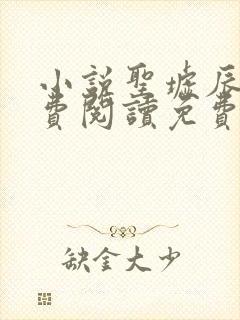 小説聖墟辰
費閱讀免費
缺金大少